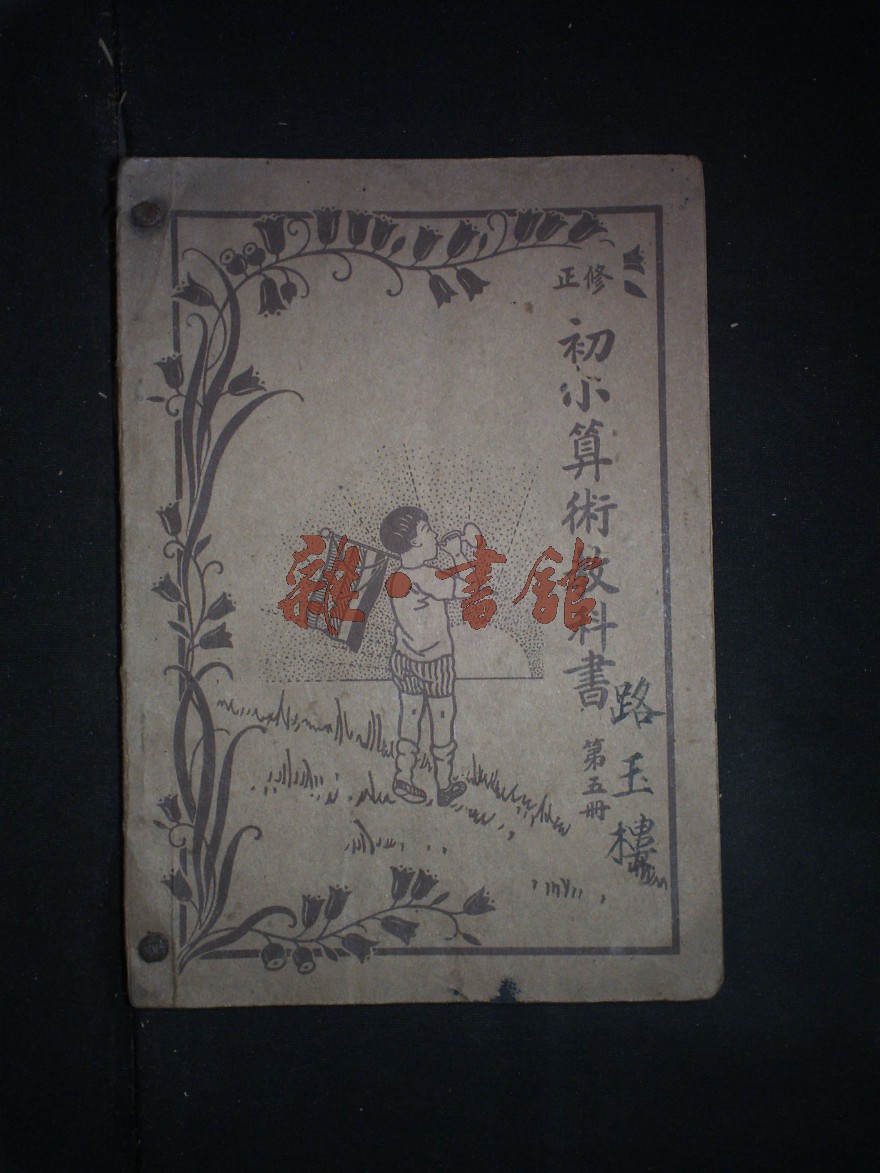 修正
初小算術教科書
第五冊
路玉樓
雜·書館